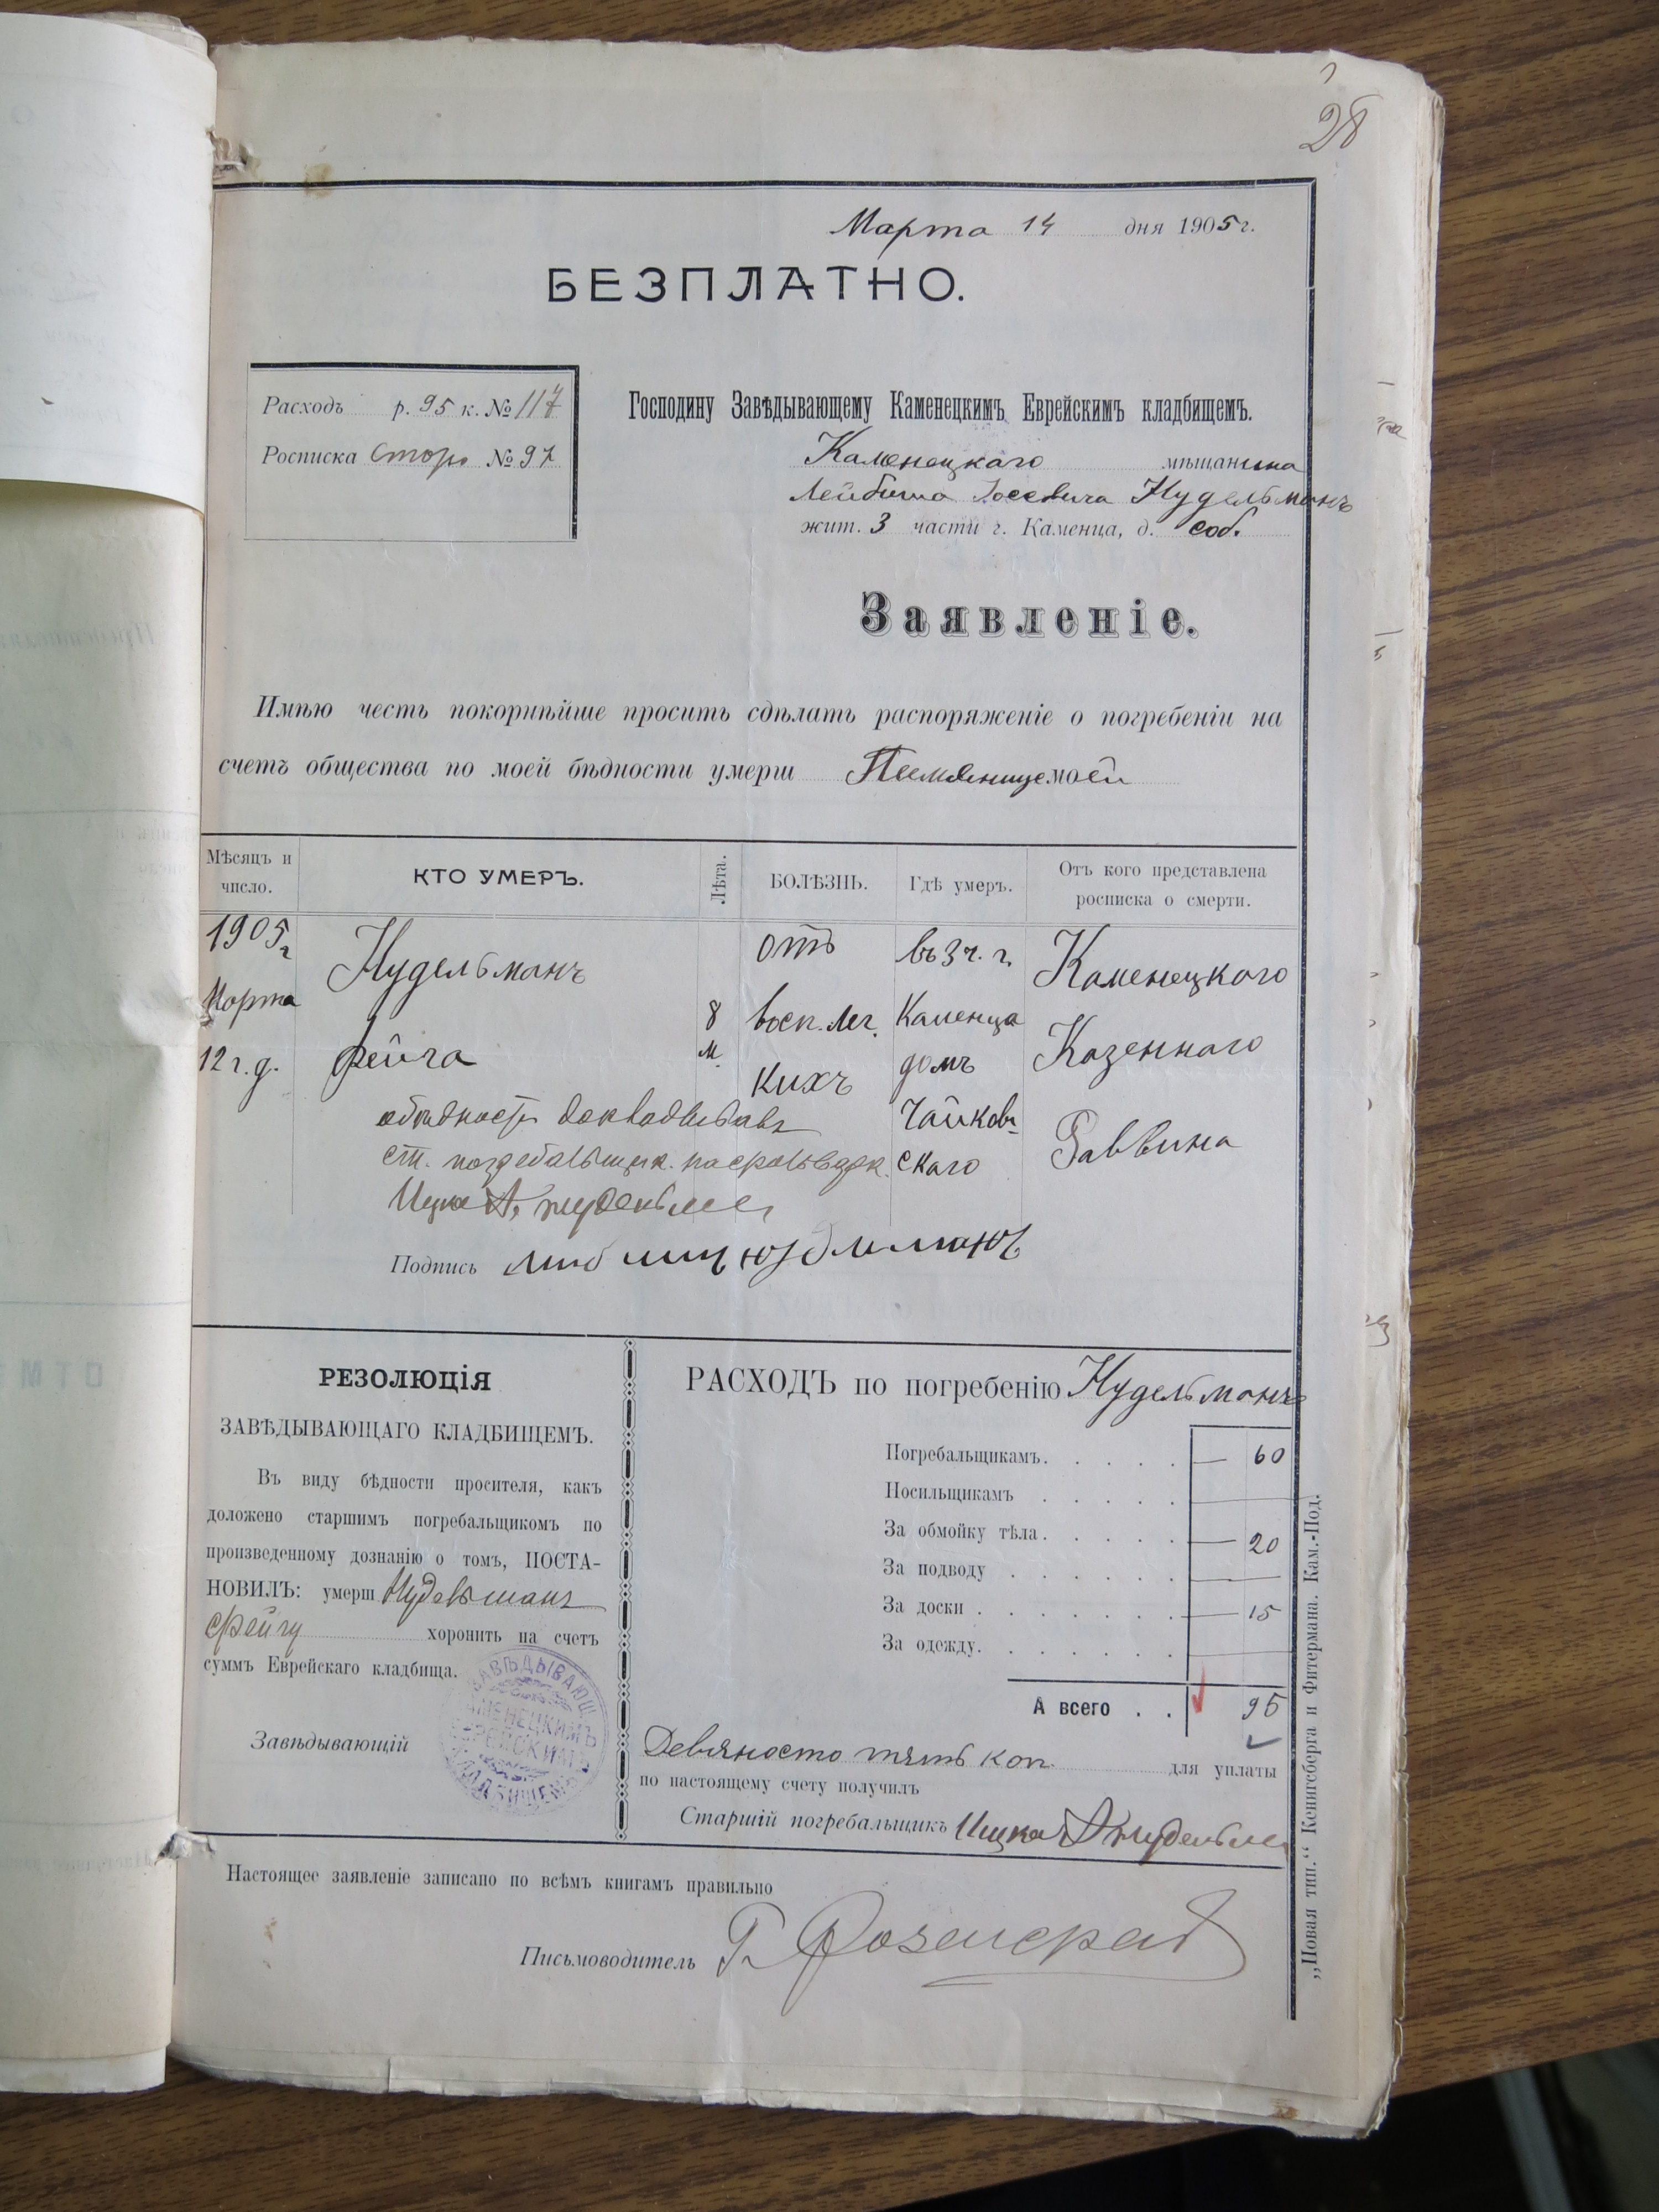 28
Марта 14 дня 1905 г.
БЕЗПЛАТНО.
Расходъ р. 95 к. № 117
Росписка Сторо № 97
Господину Завѣдывающему Каменецкимъ Еврейскимъ кладбищемъ.
Каменецкаго мѣщанина
Лейбиша Іосевича Нудельманъ
жит. 3 части г. Каменца, д. соб.
Заявленіе.
Имѣю честь покорнѣйше просить сдѣлать распоряженіе о погребеніи на
счетъ общества по моей бѣдности умерш Племянице моей
Мѣсяцъ и число.
КТО УМЕРЪ.
Лѣта.
БОЛѢЗНЬ.
Гдѣ умеръ.
Отъ кого представлена росписка о смерти.
1905 г Нудельманъ отъ въ 3 ч. г. Каменецкого
Марта 8 восп. лег. Каменца Казеннаго
12 г. д. Фейга м. кихъ домъ Раввина
Чайков-
ст. скаго
Ицко
Подпись
РЕЗОЛЮЦІЯ
ЗАВѢДЫВАЮЩАГО КЛАДБИЩЕМЪ.
Въ виду бѣдности просителя, какъ
доложено старшимъ погребальщикомъ по
произведенному дознанію о томъ, ПОСТА-
НОВИЛЪ: умерш Нудельманъ
Фейгу хоронить на счетъ
суммъ Еврейскаго кладбища.
Завѣдывающій
ЗАВѢДЫВАЮЩ.
КАМЕНЕЦКИМЪ
ЕВРЕЙСКИМЪ
КЛАДБИЩЕМЪ
РАСХОДЪ по погребенію Нудельманъ
Погребальщикамъ. — 60
Носильщикамъ
За обмойку тѣла. — 20
За подводу
За доски — 15
За одежду.
А всего . . 95
Девяносто пять коп. для уплаты
по настоящему счету получилъ
Старшій погребальщикъ Ицко
Настоящее заявленіе записано по всѣмъ книгамъ правильно
Письмоводитель
„Новая тип.“ Кенигсберга и Фитермана. Кам.-Под.